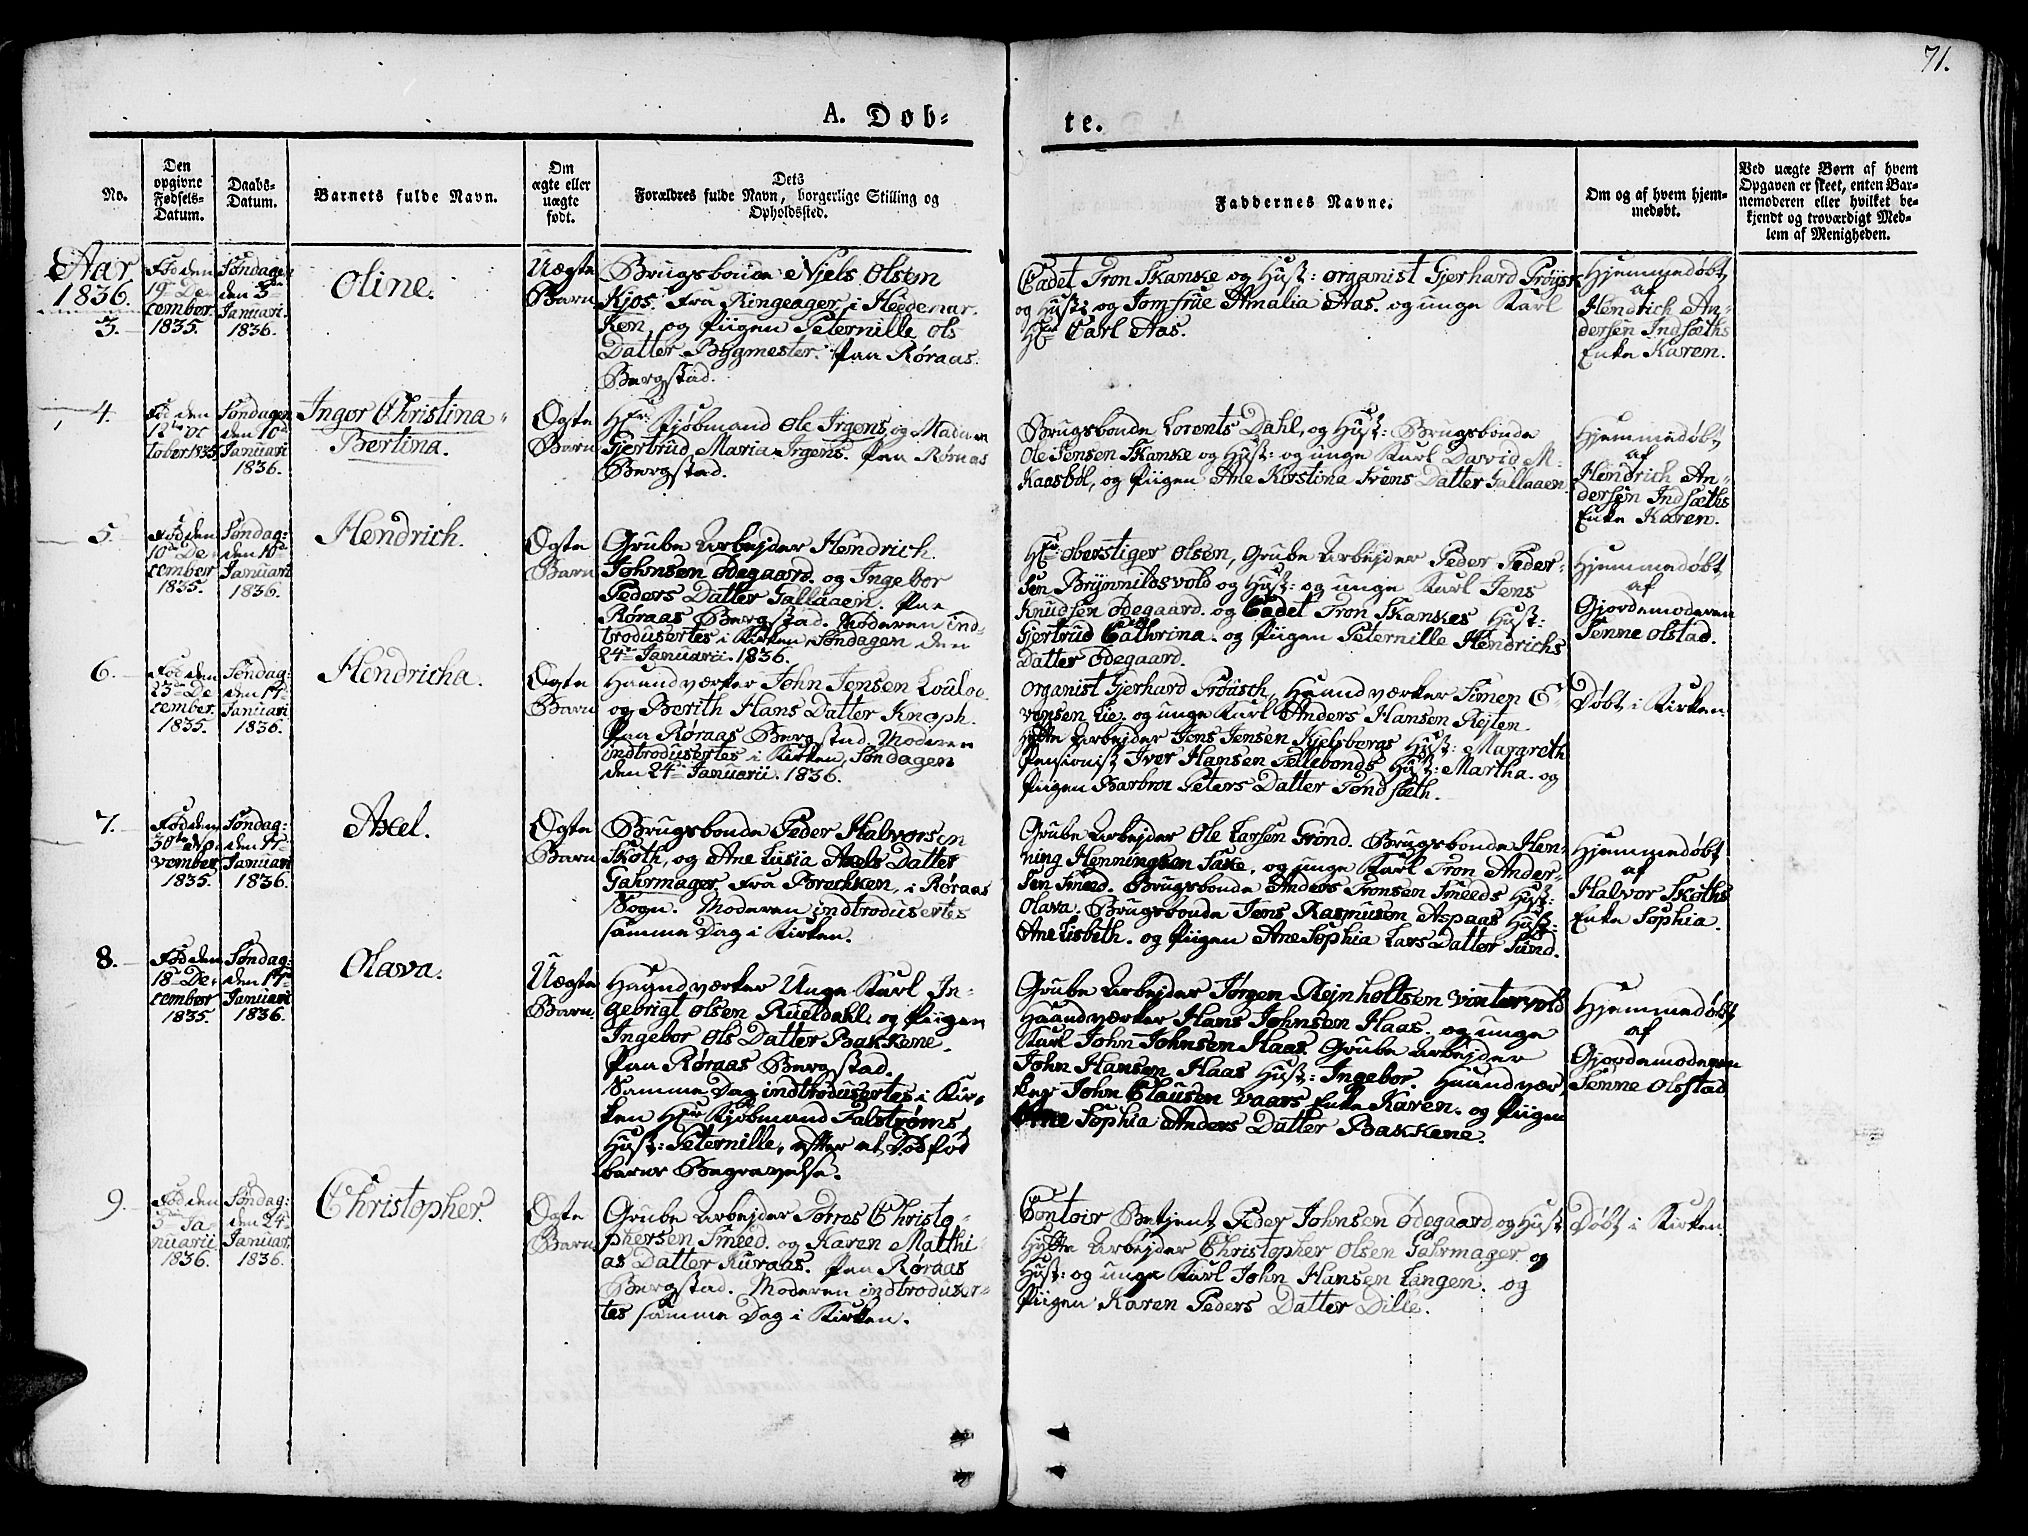 71.
A. Døb-
te.
No.
Den
opgivne
Fødsels-
Datum.
Daabs-
Datum.
Barnets fulde Navn.
Om
ægte eller
uægte
født.
Dets
Forældres fulde Navn, borgerlige Stilling og
Opholdssted.
Faddernes Navne.
Om og af hvem hjem-
medøbt.
Ved uægte Børn af hvem
Opgaven er skeet, enten Bar-
nemoderen eller hvilket be-
kjendt og troværdigt Med-
lem af Menigheden.
Aar
1836.
3.
Fød den
19de De
cember
1835.
Søndagen
den 3die
Januari
1836.
Oline.
Uægte
Barn
Brugsbonde Niels Olsen
Kjos. fra Ringeager i Heedemar
ken, og Piigen Peternille Ols
Datter Bygmester. Paa Røraas
Bergstad.
Cadet Tron Skanke og Hust: Organist Gjerhard Frøysk
og Hust: og Jomfrue Amalia Aas. og unge Karl
Hr Carl Aas.
Hjemmedøbt
af
Hendrich An-
dersen Indsæths
Enke Karen.
4.
Fød den
12te Oc
tober 1835
Søndagen
den 10de
Januari
1836.
Inger Christina
Bertina.
Ægte
Barn
Hr Kjøbmand Ole Irgens, og Madam
Gjertrud Maria Irgens. Paa Røraas
Bergstad.
Brugsbonde Lorents Dahl, og Hust: Brugsbonde
Ole Jensen Skanke og Hust: og unge Karl David M.
Kaasbøl, og Piigen Ane Kirstina Svens Datter Gallaaen
Hjemmedøbt
af
Hendrich An-
dersen Indsæths
Enke Karen.
5.
Fød den
10de De
cember
1835.
Søndag:
den 10de
Januari
1836.
Hendrich.
Ægte
Barn
Grube Arbejder Hendrich
Johnsen Ødegaard. og Ingebor
Peders Datter Gallaaen. Paa
Røraas Bergstad. Moderen ind-
trodusertes i Kirken Søndagen den
24de Januarii. 1836.
Hr Oberstiger Olsen, Grube Arbejder Peder Peder-
sen Brynnildsvold og Hust: og unge Karl Jens
Knudsen Ødegaard. og Cadet Tron Skankes Hust:
Gjertrud Cathrina. og Piigen Peternille Hendrichs
Datter Ødegaard.
Hjemmedøbt
af
Gjordemoderen
Senne Olstad.
6.
Fød den
23de De
cember.
1835.
Søndag:
den 17de
Januari
1836.
Hendricha.
Ægte
Barn
Haandværker John Jensen
og Berith Hans Datter Knoph.
Paa Røraas Bergstad Moderen
indtrodusertes i Kirken Søndagen
den 24de Januarii. 1836.
Organist Gjerhard Frøusch, Haandværker Simen E-
vensen Lie. og unge Karl Anders Hansen Rejten
Hytte Arbejder Jens Jensen Kjelsbergs Hust: Margreth
Pensionist Iver Hansen Ællebonds Hust: Martha. og
Piigen Barbroe Peters Datter Tøndsæth.
Døbt i Kirken
7.
Fød den
30te No
vember
1835.
Søndag:
den 17de
Januari
1836.
Axel.
Ægte
Barn
Brugsbonde Peder Halvorsen
Skoth, og Ane Lusia Axels Datter
Gahrmager, fra Brechken, i Røraas
Sogn. Moderen indtrodusertes
samme Dag i Kirken.
Grube Arbejder Ole Larsen Grind. Brugsbonde Hen-
ning Henningsen Saxe, og unge Karl Tron Ander-
sen Smeed. Brugsbonde Anders Tronsen Smeeds Hust:
Olava. Brugsbonde Jens Rasmusen Aspaas Hust:
Ane Lisbeth. og Piigen Ane Sophia Lars Datter Sund.
Hjemmedøbt
af
Halvor Skoths
Enke Sophia.
8.
Fød den
18de De-
cember
1835.
Søndag:
den 17de
Januari
1836.
Olava.
Uægte
Barn
Haandværker Unge Karl In-
gebrigt Olsen Rueldahl, og Piigen
Ingebor Ols Datter Bakkene.
Paa Røraas Bergstad.
Samme Dag indtrodusertes i Kir-
ken Hr Kjøbmand Falstrøms
Hust: Peternille, efter et Død fød
barns Begravelse.
Grube Arbejder Jørgen Rejnholtsen Vintervold
Haandværker Hans Johnsen Haas. og unge
Karl John Johnsen Haas. Grube Arbejder
John Hansen Haas Hust: Ingebor. Haandvær-
ker John Clausen Vaars Enke Karen. og Piigen
Ane Sophia Anders Datter Bakkene.
Hjemmedøbt
af
Gjordemoderen
Senne Olsstad
9.
Fød den
3die Ja-
nuarii
1836.
Søndag:
den 24de
Januar.
1836.
Christopher.
Ægte
Barn
Grube Arbejder Torres Christo-
phersen Smeed. og Karen Matthi-
as Datter Kuraas. Paa Røraas
Bergstad. Moderen indtroduser-
tes samme Dag i Kirken.
Contoir Betjent Peder Johnsen Ødegaard, og Hust
Hytte Arbejder Christopher Olsen Gahrmager og
Hust: og unge Karl John Hansen Langen. og
Piigen Karen Peders Datter Dille.
Døbt i Kirken